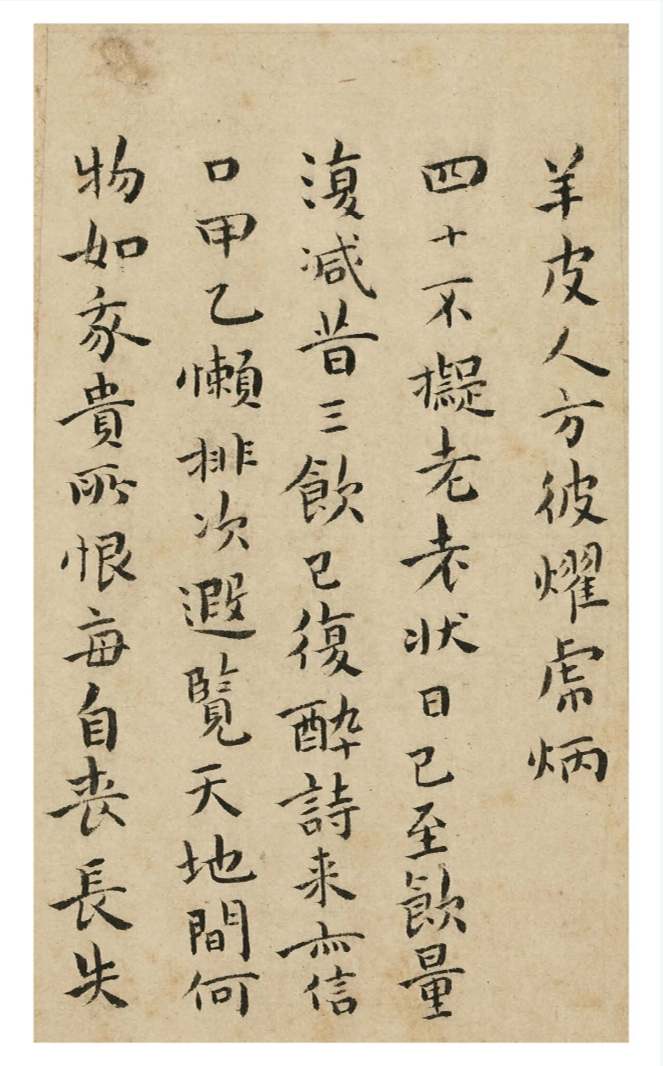 羊皮人方彼耀虎炳
四十不擬老老状日已至飲量
復減昔三飲已復醉詩来亦信
口甲乙懶排次遐覽天地間何
物如我貴所恨每自喪長失